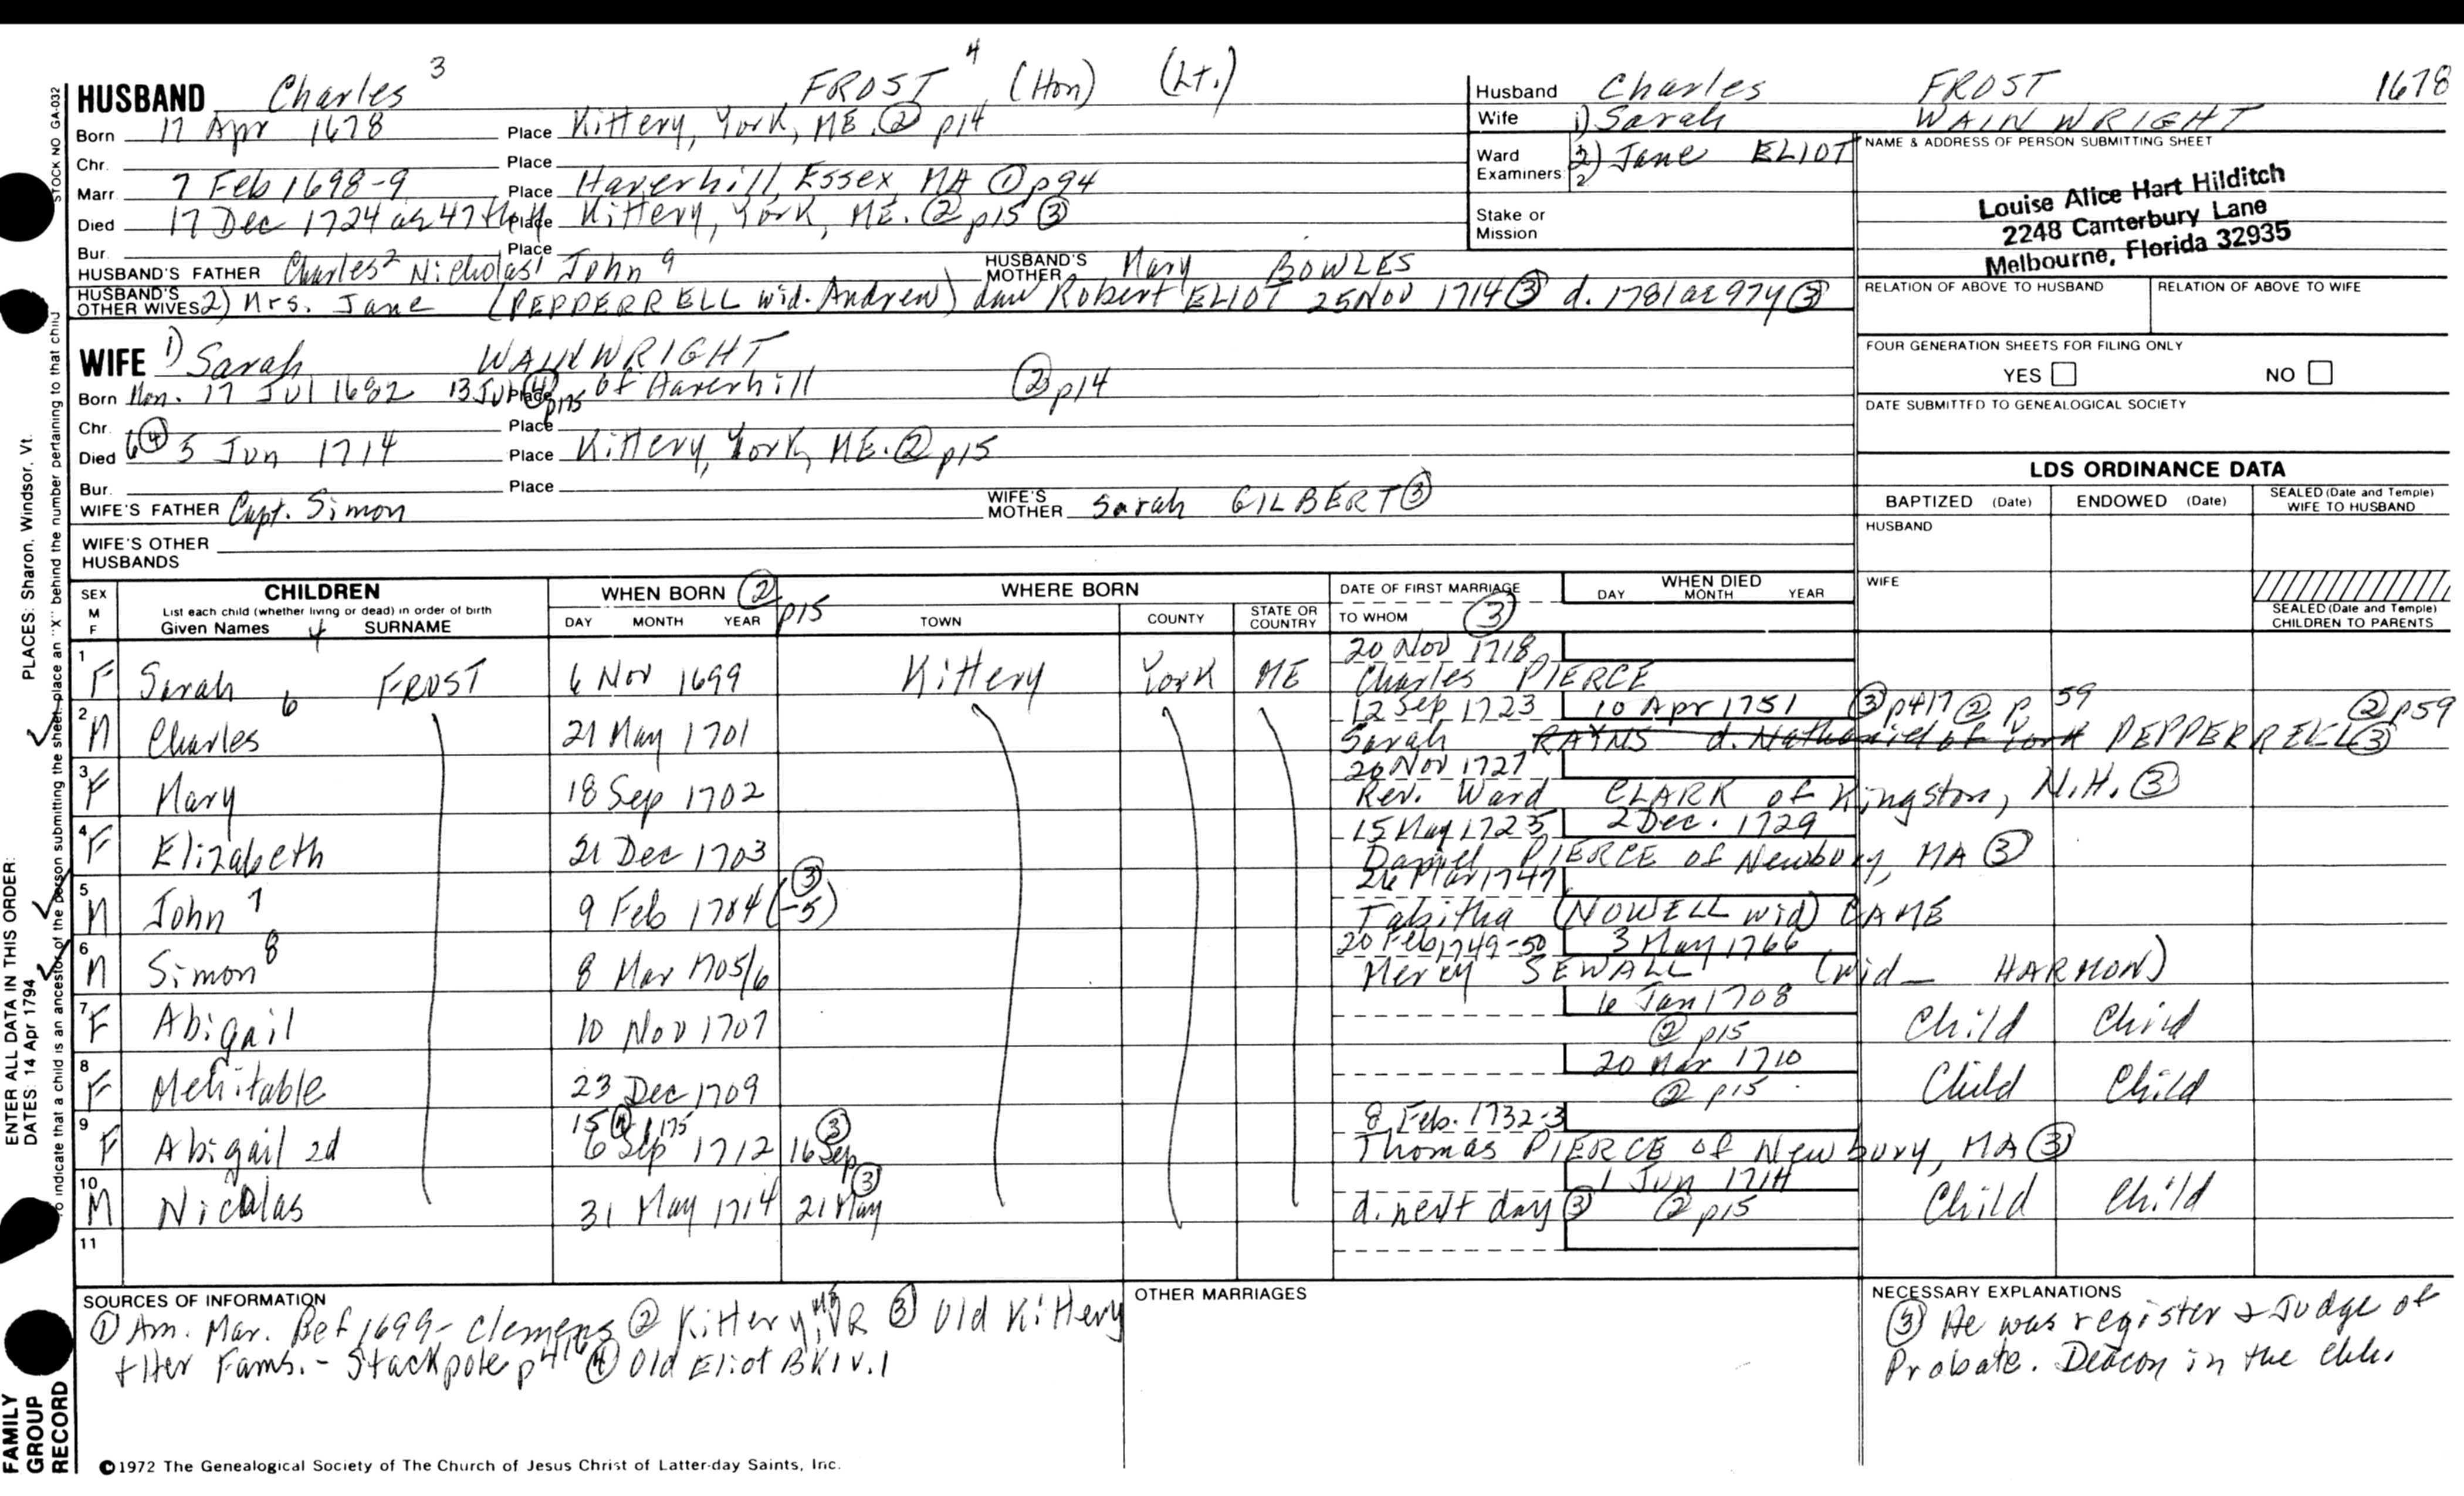 HUSBAND Charles 3 FROST 4 (Hon) (Lt.)
Born 17 Apr 1678 Place Kittery, York, ME. ② p14
Chr. Place
Marr. 7 Feb 1698-9 Place Haverhill, Essex, MA ① p94
Died 17 Dec 1724 ae 47th y Place Kittery, York, ME. ② p15 ③
Bur. Place
HUSBAND'S FATHER Charles2 Nicholas1 John 9 HUSBAND'S MOTHER Mary BOWLES
HUSBAND'S OTHER WIVES 2) Mrs. Jane (PEPPERRELL wid. Andrew) dau Robert ELIOT 25 Nov 1714 ③ d. 1781 ae 97y ③
Husband Charles FROST 1678
Wife 1) Sarah WAINWRIGHT
Ward Examiners: 2) Jane ELIOT
2
Stake or Mission
NAME & ADDRESS OF PERSON SUBMITTING SHEET
Louise Alice Hart Hilditch
2248 Canterbury Lane
Melbourne, Florida 32935
RELATION OF ABOVE TO HUSBAND RELATION OF ABOVE TO WIFE
FOUR GENERATION SHEETS FOR FILING ONLY
YES NO
DATE SUBMITTED TO GENEALOGICAL SOCIETY
WIFE 1) Sarah WAINWRIGHT
Born Mon. 17 Jul 1682 13 Jul ④ p175 Place of Haverhill ② p14
Chr. Place
Died 6 ④ 5 Jun 1714 Place Kittery, York, ME. ② p15
Bur. Place
WIFE'S FATHER Capt. Simon WIFE'S MOTHER Sarah GILBERT ③
WIFE'S OTHER HUSBANDS
LDS ORDINANCE DATA
BAPTIZED (Date) ENDOWED (Date) SEALED (Date and Temple) WIFE TO HUSBAND
HUSBAND
WIFE
SEALED (Date and Temple) CHILDREN TO PARENTS
SEX M F CHILDREN List each child (whether living or dead) in order of birth Given Names SURNAME
WHEN BORN ② p15 DAY MONTH YEAR
WHERE BORN TOWN COUNTY STATE OR COUNTRY
DATE OF FIRST MARRIAGE TO WHOM ③
WHEN DIED DAY MONTH YEAR
1 F Sarah FROST 6 Nov 1699 Kittery York ME 20 Nov 1718
Charles PIERCE
2 M Charles 6 21 May 1701 12 Sep 1723 10 Apr 1751 ③ p417 ② p 59 ② p59
Sarah RAYNS d. Nathaniel of York PEPPERRELL ③
3 F Mary 18 Sep 1702 26 Nov 1727
Rev. Ward CLARK of Kingston, N.H. ③
4 F Elizabeth 21 Dec 1703 15 May 1723 2 Dec. 1729
Daniel PIERCE of Newbury, MA ③
5 M John 7 9 Feb 1704 (-5) ③ 26 Mar 1747
Tabitha (NOWELL wid) CAME
6 M Simon 8 8 Mar 1705/6 20 Feb 1749-50 3 May 1766
Mercy SEWALL (wid_ HARMON)
7 F Abigail 10 Nov 1707 6 Jan 1708 ② p15 Child Child
8 F Mehitable 23 Dec 1709 20 Mar 1710 ② p15 Child Child
9 F Abigail 2d 15 ④ p175 6 Sep 1712 16 Sep ③ 8 Feb. 1732-3
Thomas PIERCE of Newbury, MA ③
10 M Nicolas 31 May 1714 21 May ③ d. next day ③ 1 Jun 1714 ② p15 Child Child
11
SOURCES OF INFORMATION
① Am. Mar. Bef 1699 - Clemens ② Kittery, ME VR ③ Old Kittery
+ Her Fams. - Stackpole p 416 ④ Old Eliot BK1 v.1
OTHER MARRIAGES
NECESSARY EXPLANATIONS
③ He was register & Judge of
Probate. Deacon in the chh.
©1972 The Genealogical Society of The Church of Jesus Christ of Latter-day Saints, Inc.
STOCK NO GA-032
To indicate that a child is an ancestor of the person submitting the sheet, place an "X" behind the number pertaining to that child
PLACES: Sharon, Windsor, Vt.
ENTER ALL DATA IN THIS ORDER:
DATES: 14 Apr 1794
FAMILY GROUP RECORD